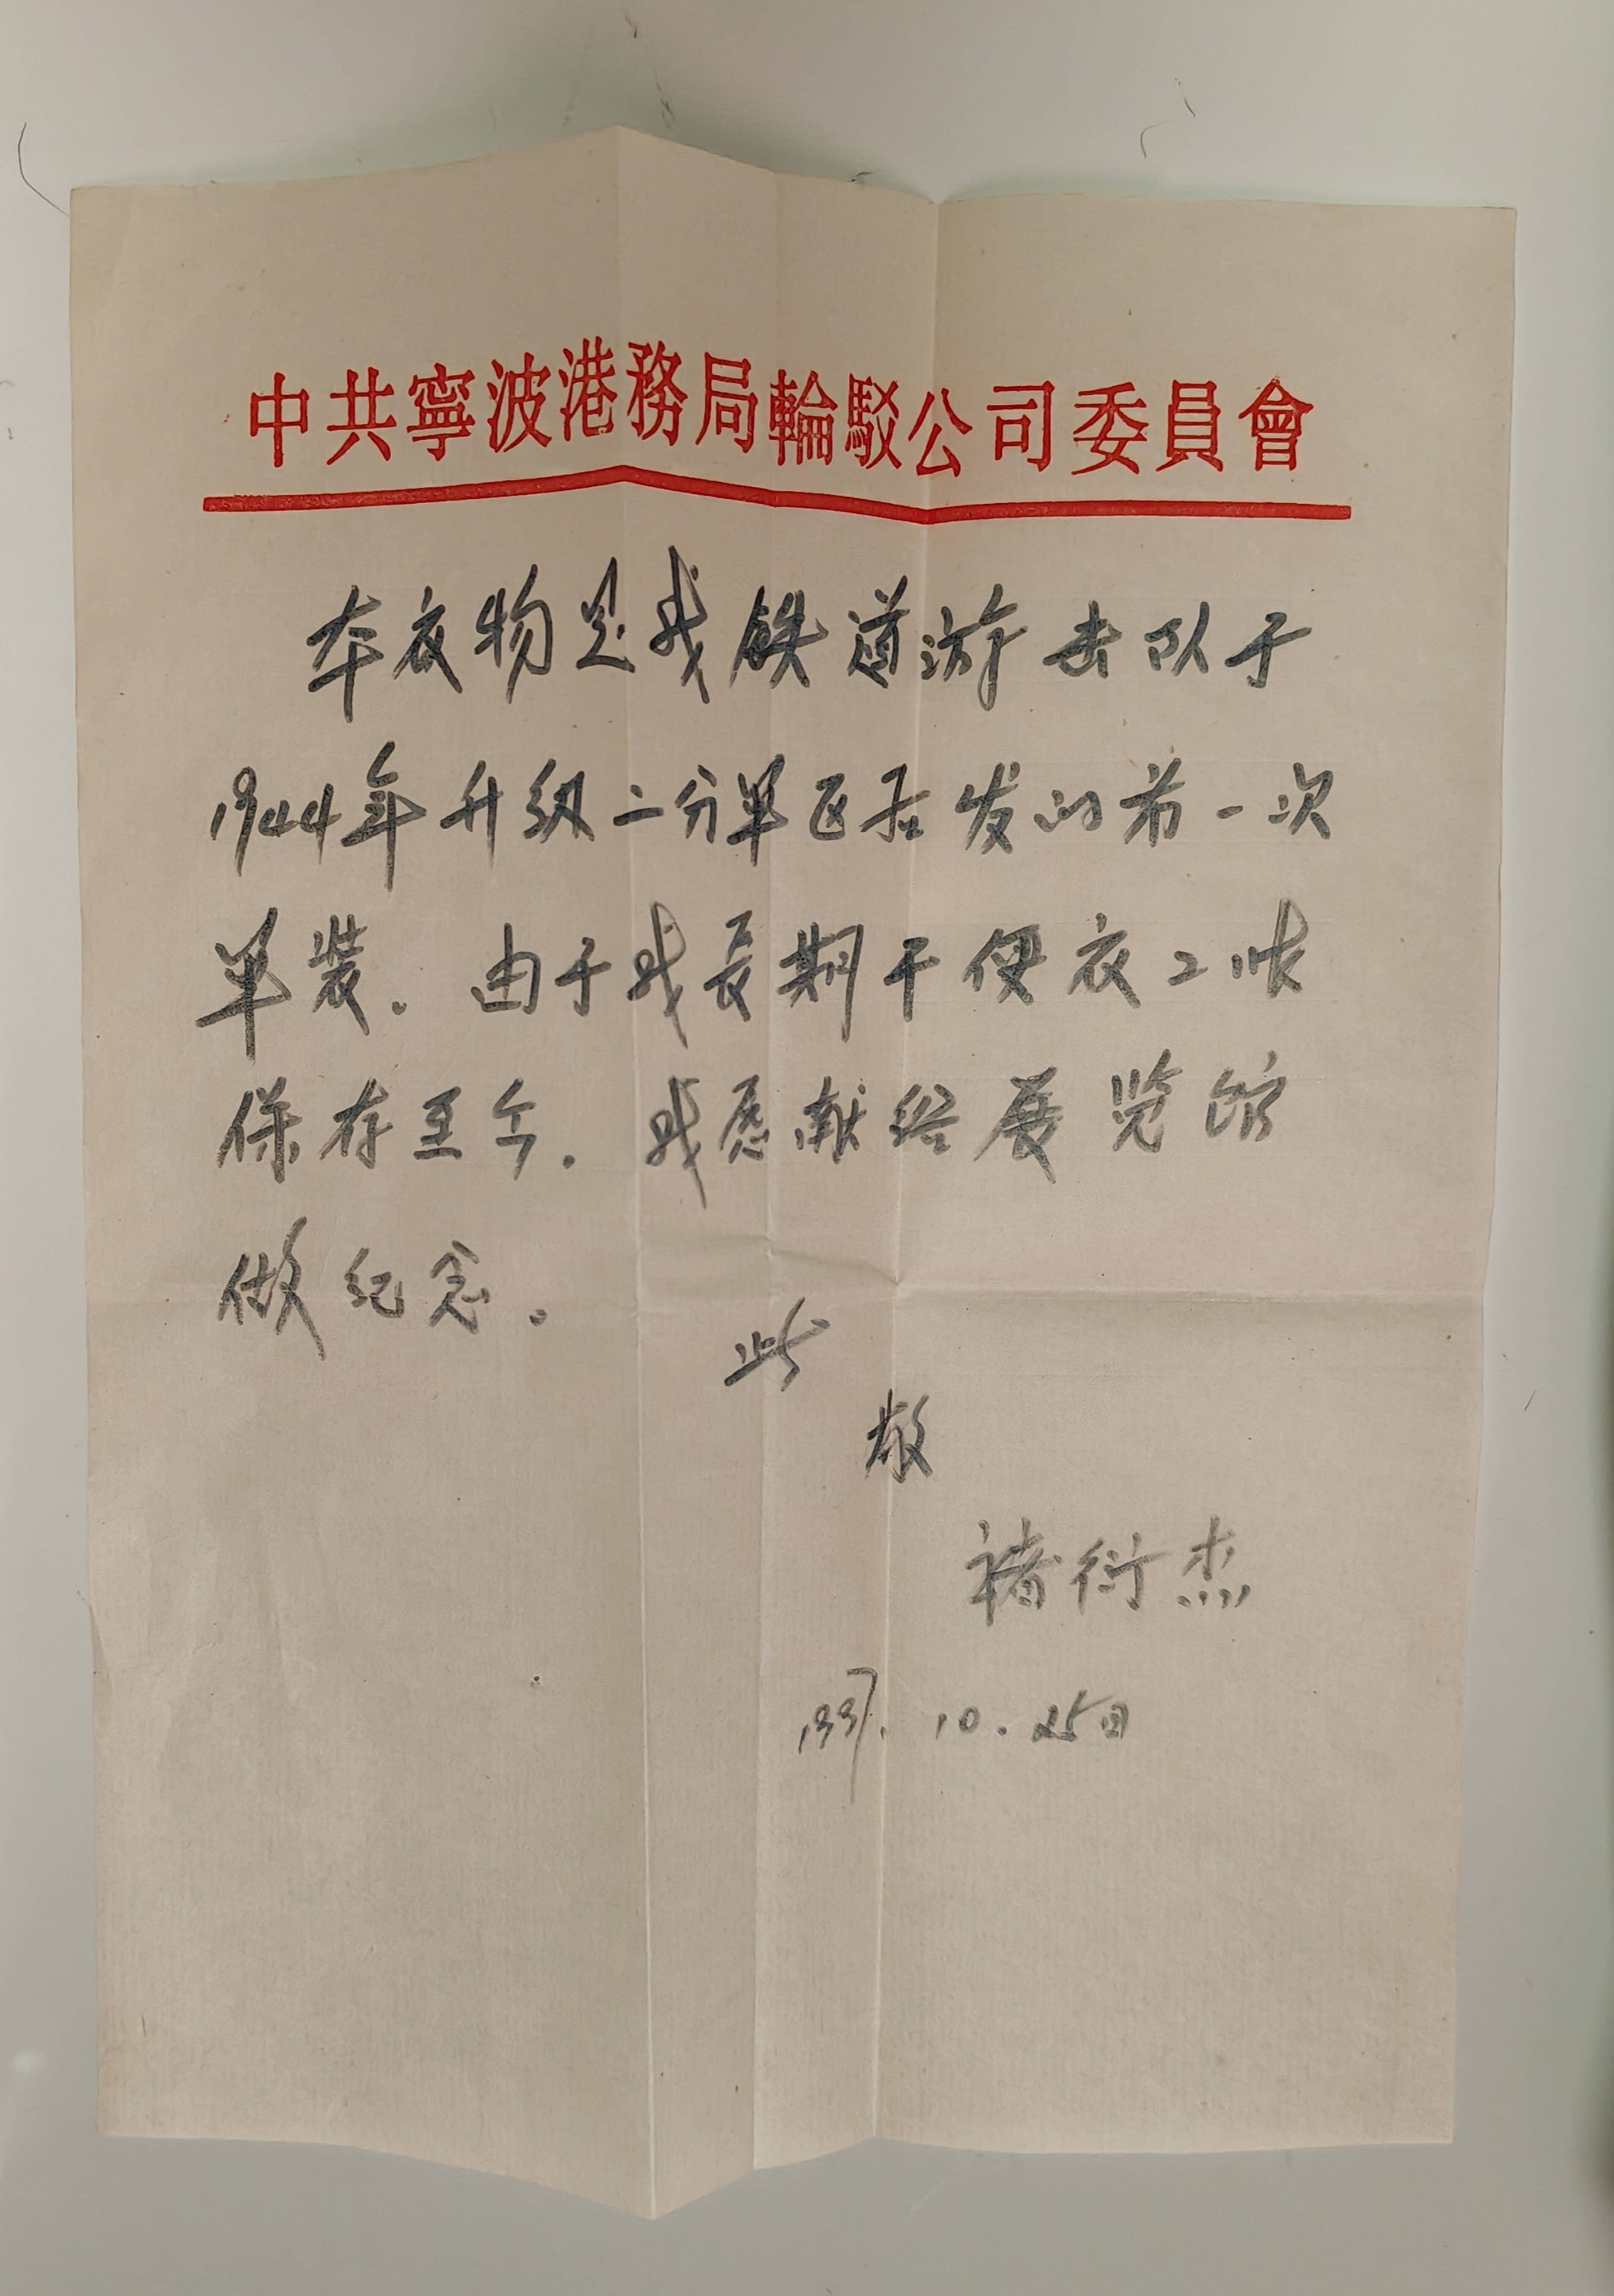 中共寧波港務局輪駁公司委員會
本衣物是我铁道游击队于
1944年升级二分军区后发的第一次
单装。由于我長期干便衣工作
保存至今。我愿献给展览馆
做纪念。
此
敬
褚衍杰
1997.10.25日